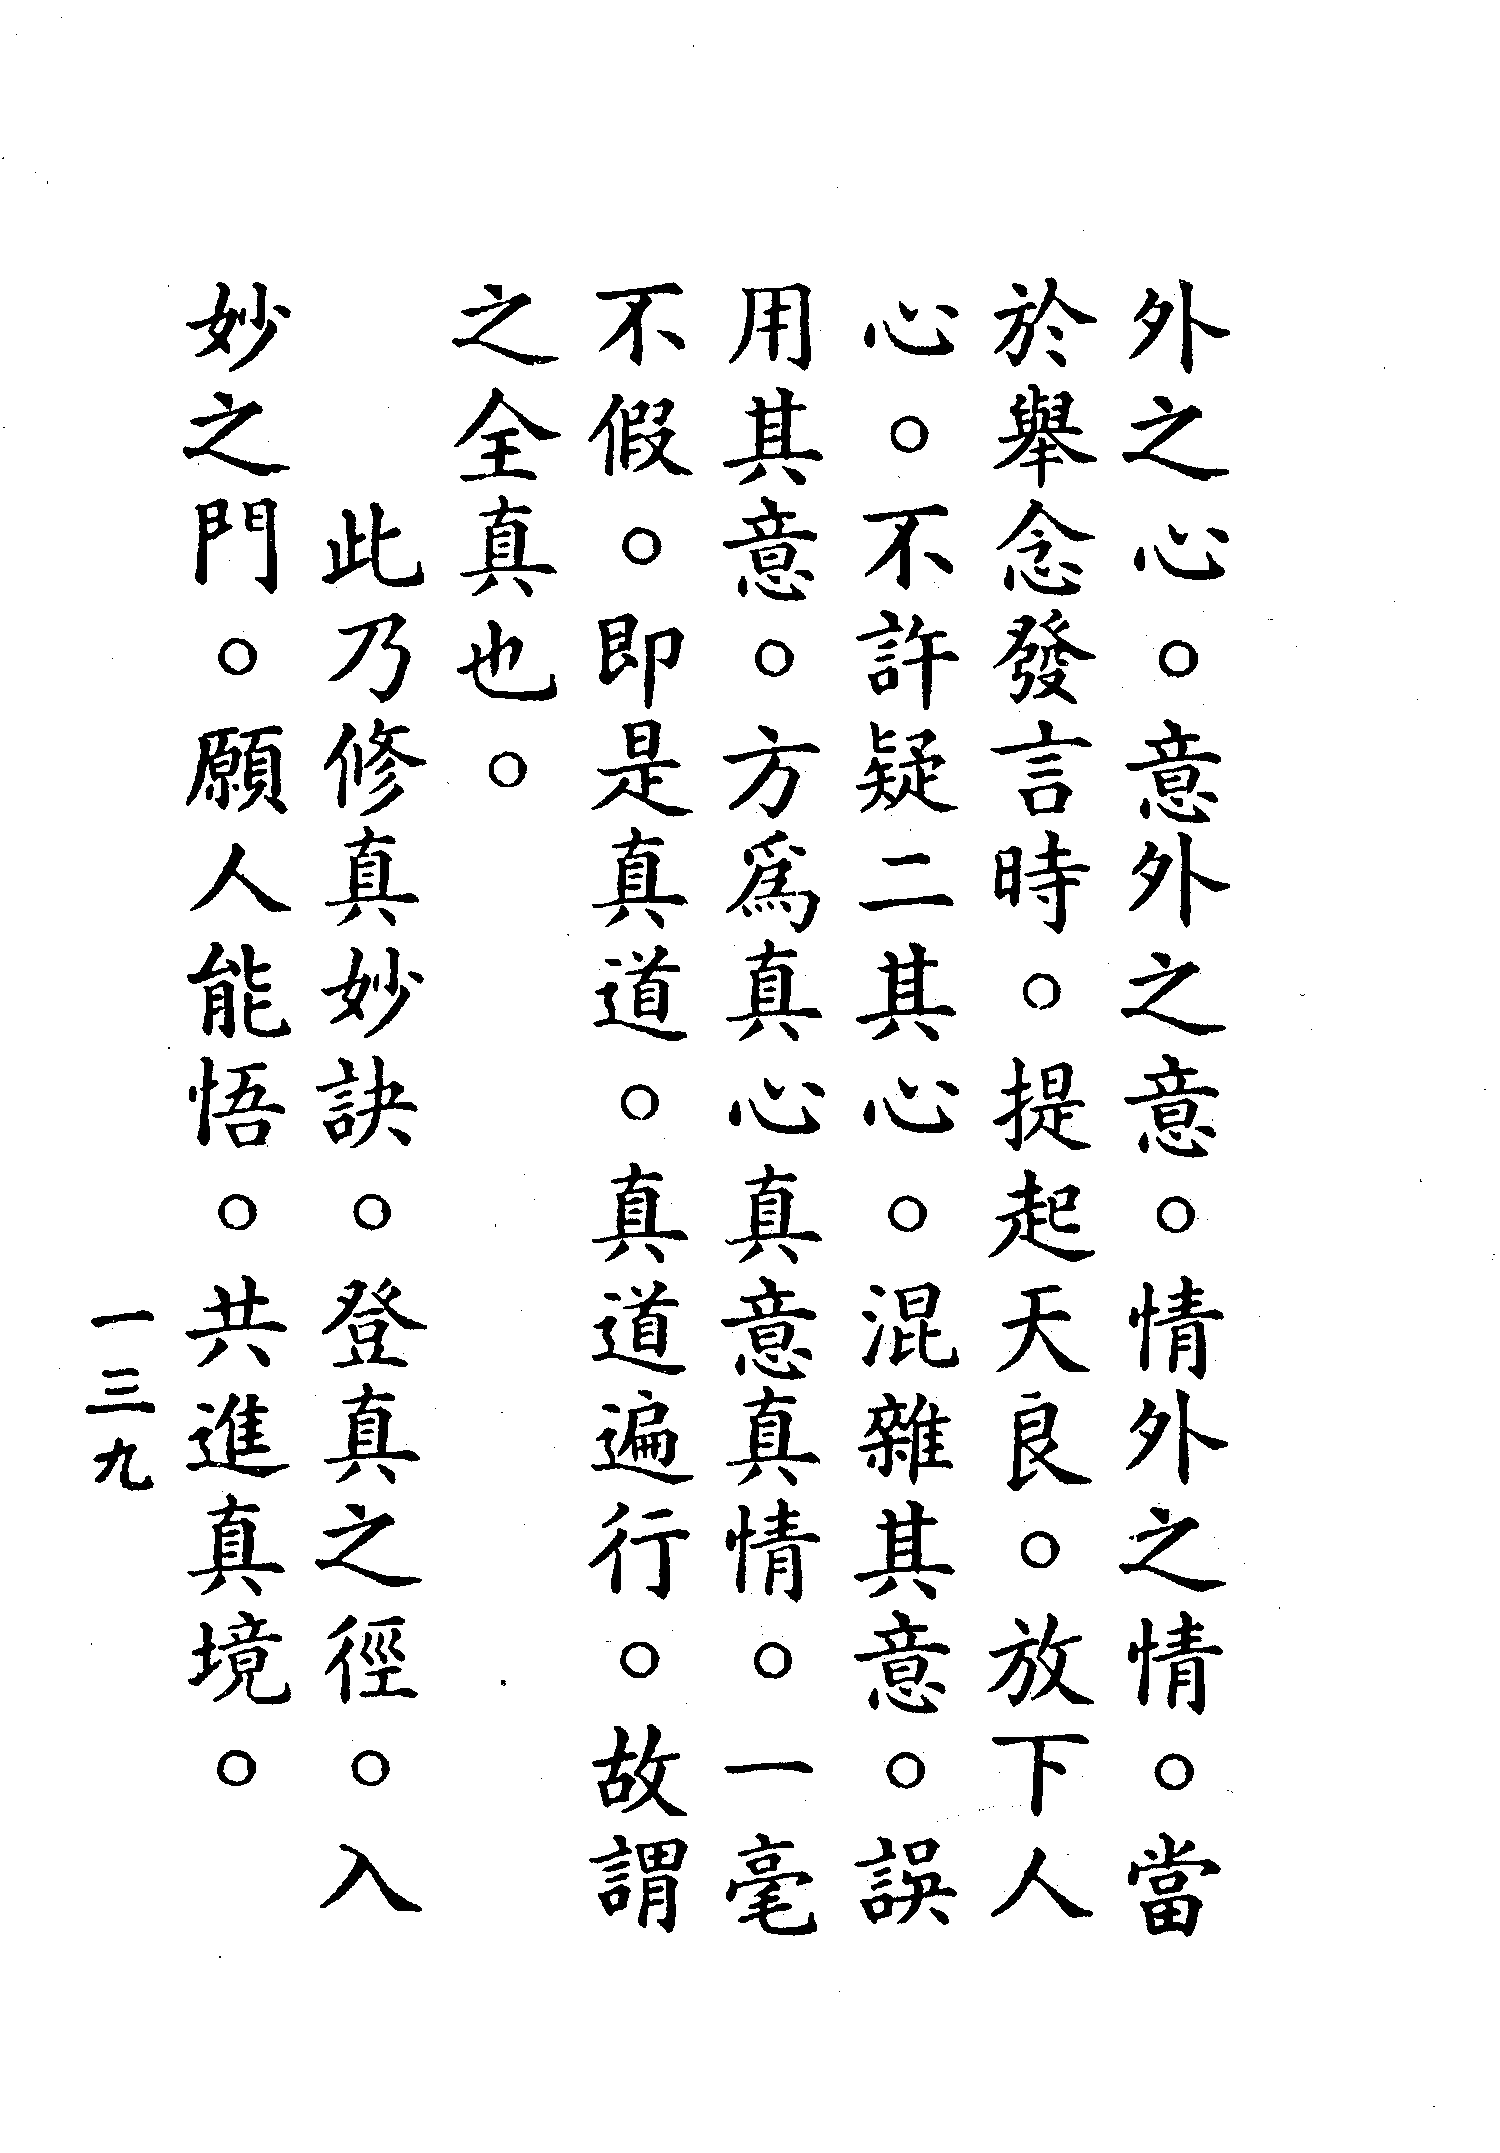 外之心。意外之意。情外之情。當
於舉念發言時。提起天良。放下人
心。不許疑二其心。混雜其意。誤
用其意。方為真心真意真情。一毫
不假。即是真道。真道遍行。故謂
之全真也。
此乃修真妙訣。登真之徑。入
妙之門。願人能悟。共進真境。
一三九